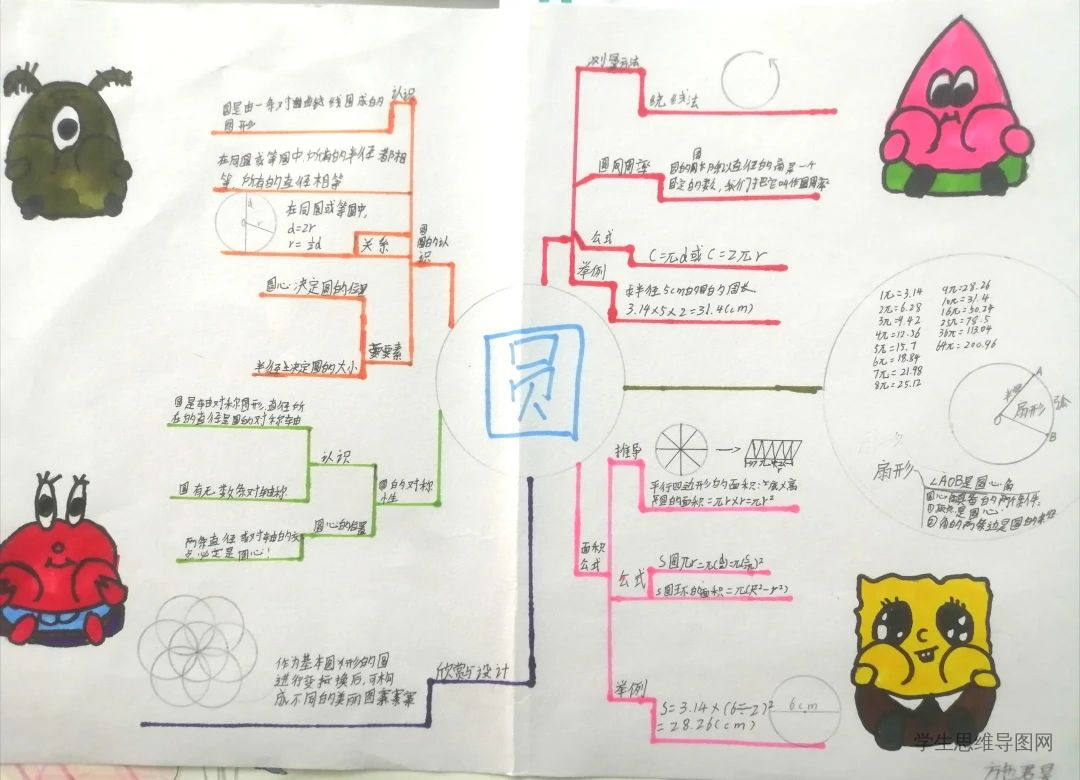 圆
认识
圆是由一条对曲曲线围成的
圆形
在同圆或等圆中,所有的半径都相
等,所有的直径相等
d
r
在同圆或等圆中,
d=2r
r=½d
关系
圆的认
识
圆心决定圆的位置
要素
半径决定圆的大小
圆是轴对称图形,直径所
在的直径是圆的对称轴
认识
圆有无数条对称轴
圆的对称
性
圆心的位置
两条直径或对称轴的交
点必定是圆心!
欣赏与设计
作为基本图形的圆
进行变换后,可构
成不同的美丽图案
测量方法
绕线法
圆周率
圆的周长除以直径的商是一个
固定的数,我们把它叫作圆周率
公式
C=πd或C=2πr
举例
求半径5cm的圆的周长
3.14×5×2=31.4(cm)
1π=3.14
2π=6.28
3π=9.42
4π=12.56
5π=15.7
6π=18.84
7π=21.98
8π=25.12
9π=28.26
10π=31.4
16π=50.24
25π=78.5
36π=113.04
64π=200.96
A
半径
扇形
弧
O
B
扇形
∠AOB是圆心角
是圆心
角的两条边是圆的半径
推导
平行四边形的面积=底×高
圆的面积=πr×r=πr²
面积
公式
公式
S圆环的面积=π(R²-r²)
举例
S=3.14×(6÷2)²
=28.26(cm)
6cm
学生思维导图网